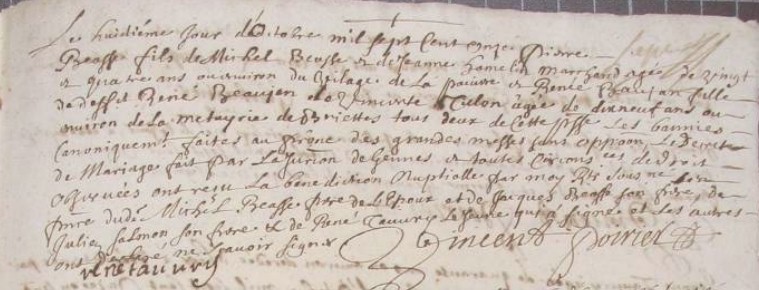 Le huictiéme Jour d'Octobre mil sept cent onze Pierre
Beasse fils de Michel Beasse & de Jeanne hamelin marchand agé de vingt
& quatre ans ou environ du village de la & Renée Beaujan fille
de deffunt René Beaujan & de Culon agée de dixneuf ans ou
environ de la metayrie de Briettes tous deux de cette psse Les bannies
Canoniquemt. faites au prône des grandes messes sans opposon, Le Decret
de Mariage fait par La Jurion de Gennes & toutes de droit
observées ont reçu La benediction Nuptialle par moy Ptre sous né
dudt Michel Beasse frere de L'Epoux et de Jacques Beasse son frere, de
Julien Salmon son frere & de René Tauvry Le Jeune qui a signé et les autres
ont declaré ne sçavoir signer
Vincent Poirier
rene tauvry